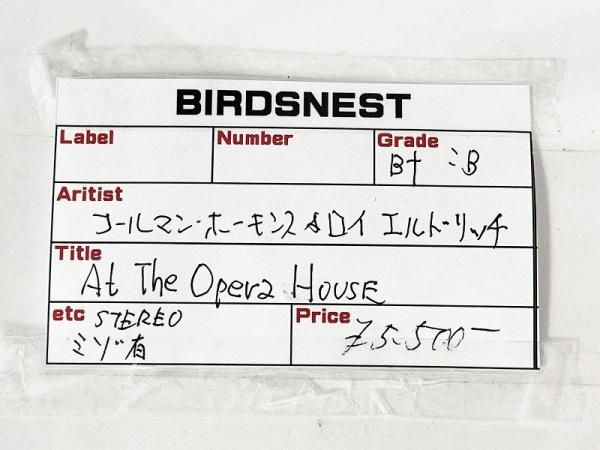 BIRDSNEST
Label Number Grade
B+ :B
Aritist
コールマン・ホーキンス & ロイ エルドリッチ
Title
At The Opera House
etc STEREO
ミゾ有
Price
¥5.500-